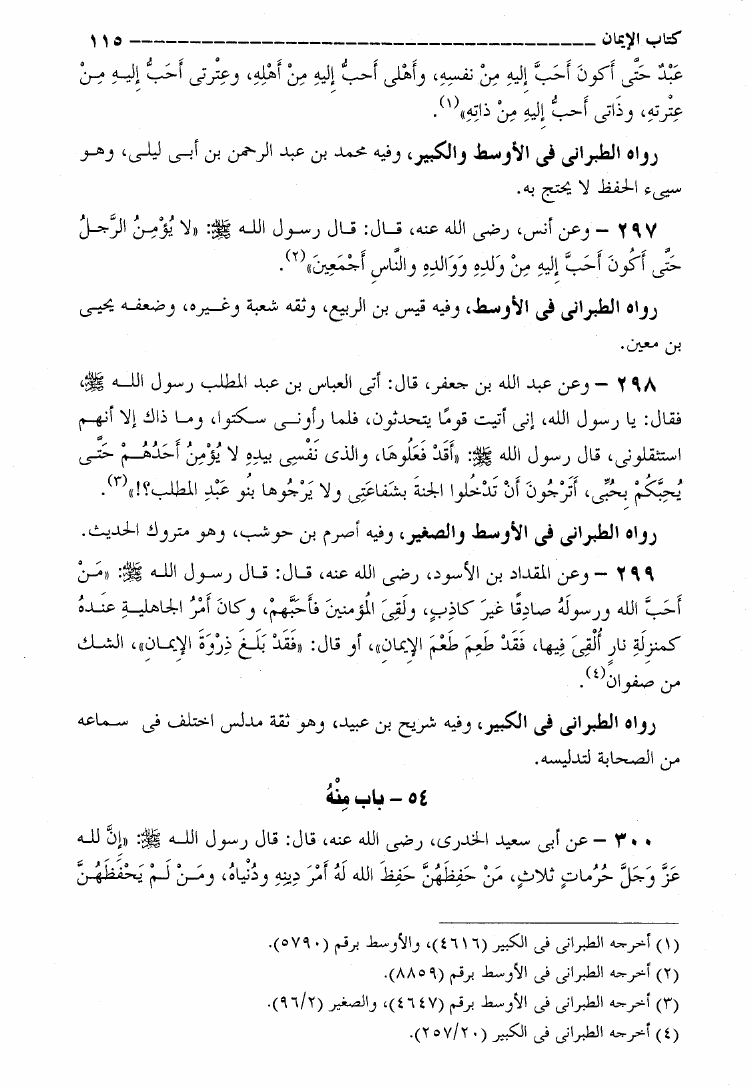 كتاب الإيمان ــــــــــــــــــــــــــــــــــــــــ ١١٥
عَبْدٌ حَتَّى أكونَ أحَبَّ إليهِ مِنْ نفسِهِ، وأَهْلى أحبُّ إليهِ مِنْ أهْلِهِ، وعِتْرتى أحَبُّ إليهِ مِنْ
عِتْرتهِ، وذَاتى أحبُّ إليهِ مِنْ ذاتِهِ»(١).
رواه الطبرانى فى الأوسط والكبير، وفيه محمد بن عبد الرحمن بن أبى ليلى، وهو
سيىء الحفظ لا يحتج به.
٢٩٧ – وعن أنس، رضى الله عنه، قال: قال رسول الله ﷺ: «لا يُؤْمِنُ الرَّجلُ
حَتَّى أكُونَ أحَبَّ إليهِ مِنْ وَلدِهِ وَوَالدِهِ والنَّاسِ أَجْمَعِينَ»(٢).
رواه الطبرانى فى الأوسط، وفيه قيس بن الربيع، وثقه شعبة وغيره، وضعفه يحيى
بن معين.
٢٩٨ – وعن عبد الله بن جعفر، قال: أتى العباس بن عبد المطلب رسول الله ﷺ،
فقال: يا رسول الله، إنى أتيت قومًا يتحدثون، فلما رأونى سكتوا، وما ذاك إلا أنهم
استثقلونى، قال رسول الله ﷺ: «أَقَدْ فَعَلُوهَا، والذى نَفْسِى بيدِهِ لا يُؤْمِنُ أَحَدُهُمْ حَتَّى
يُحِبَّكمْ بِحُبِّى، أَتَرْجُونَ أَنْ تَدْخُلوا الجنةَ بشَفاعَتِى ولا يَرْجُوها بنُو عَبْدِ المطلب؟!»(٣).
رواه الطبرانى فى الأوسط والصغير، وفيه أصرم بن حوشب، وهو متروك الحديث.
٢٩٩ – وعن المقداد بن الأسود، رضى الله عنه، قال: قال رسول الله ﷺ: «مَنْ
أحَبَّ الله ورسولَهُ صادِقًا غيرَ كاذِبٍ، ولَقِىَ المُؤمنينَ فأحَبَّهمْ، وكانَ أمْرُ الجاهليةِ عندَهُ
كمنزلَةِ نارٍ أُلْقِىَ فِيها، فَقَدْ طَعِمَ طَعْمَ الإِيمان»، أو قال: «فَقَدْ بَلَغَ ذِرْوَةَ الإِيمانِ»، الشك
من صفوان(٤).
رواه الطبرانى فى الكبير، وفيه شريح بن عبيد، وهو ثقة مدلس اختلف فى سماعه
من الصحابة لتدليسه.
٥٤ – باب مِنْهُ
٣٠٠ – عن أبى سعيد الخدرى، رضى الله عنه، قال: قال رسول الله ﷺ: «إِنَّ لله
عَزَّ وَجَلَّ حُرُماتٍ ثَلاثٍ، مَنْ حَفِظَهُنَّ حَفِظَ الله لَهُ أَمْرَ دِينِهِ ودُنْياهُ، ومَنْ لَمْ يَحْفَظْهُنَّ
(١) أخرجه الطبرانى فى الكبير (٤٦١٦)، والأوسط برقم (٥٧٩٠).
(٢) أخرجه الطبرانى فى الأوسط برقم (٨٨٥٩).
(٣) أخرجه الطبرانى فى الأوسط برقم (٤٦٤٧)، والصغير (٩٦/٢).
(٤) أخرجه الطبرانى فى الكبير (٢٥٧/٢٠).